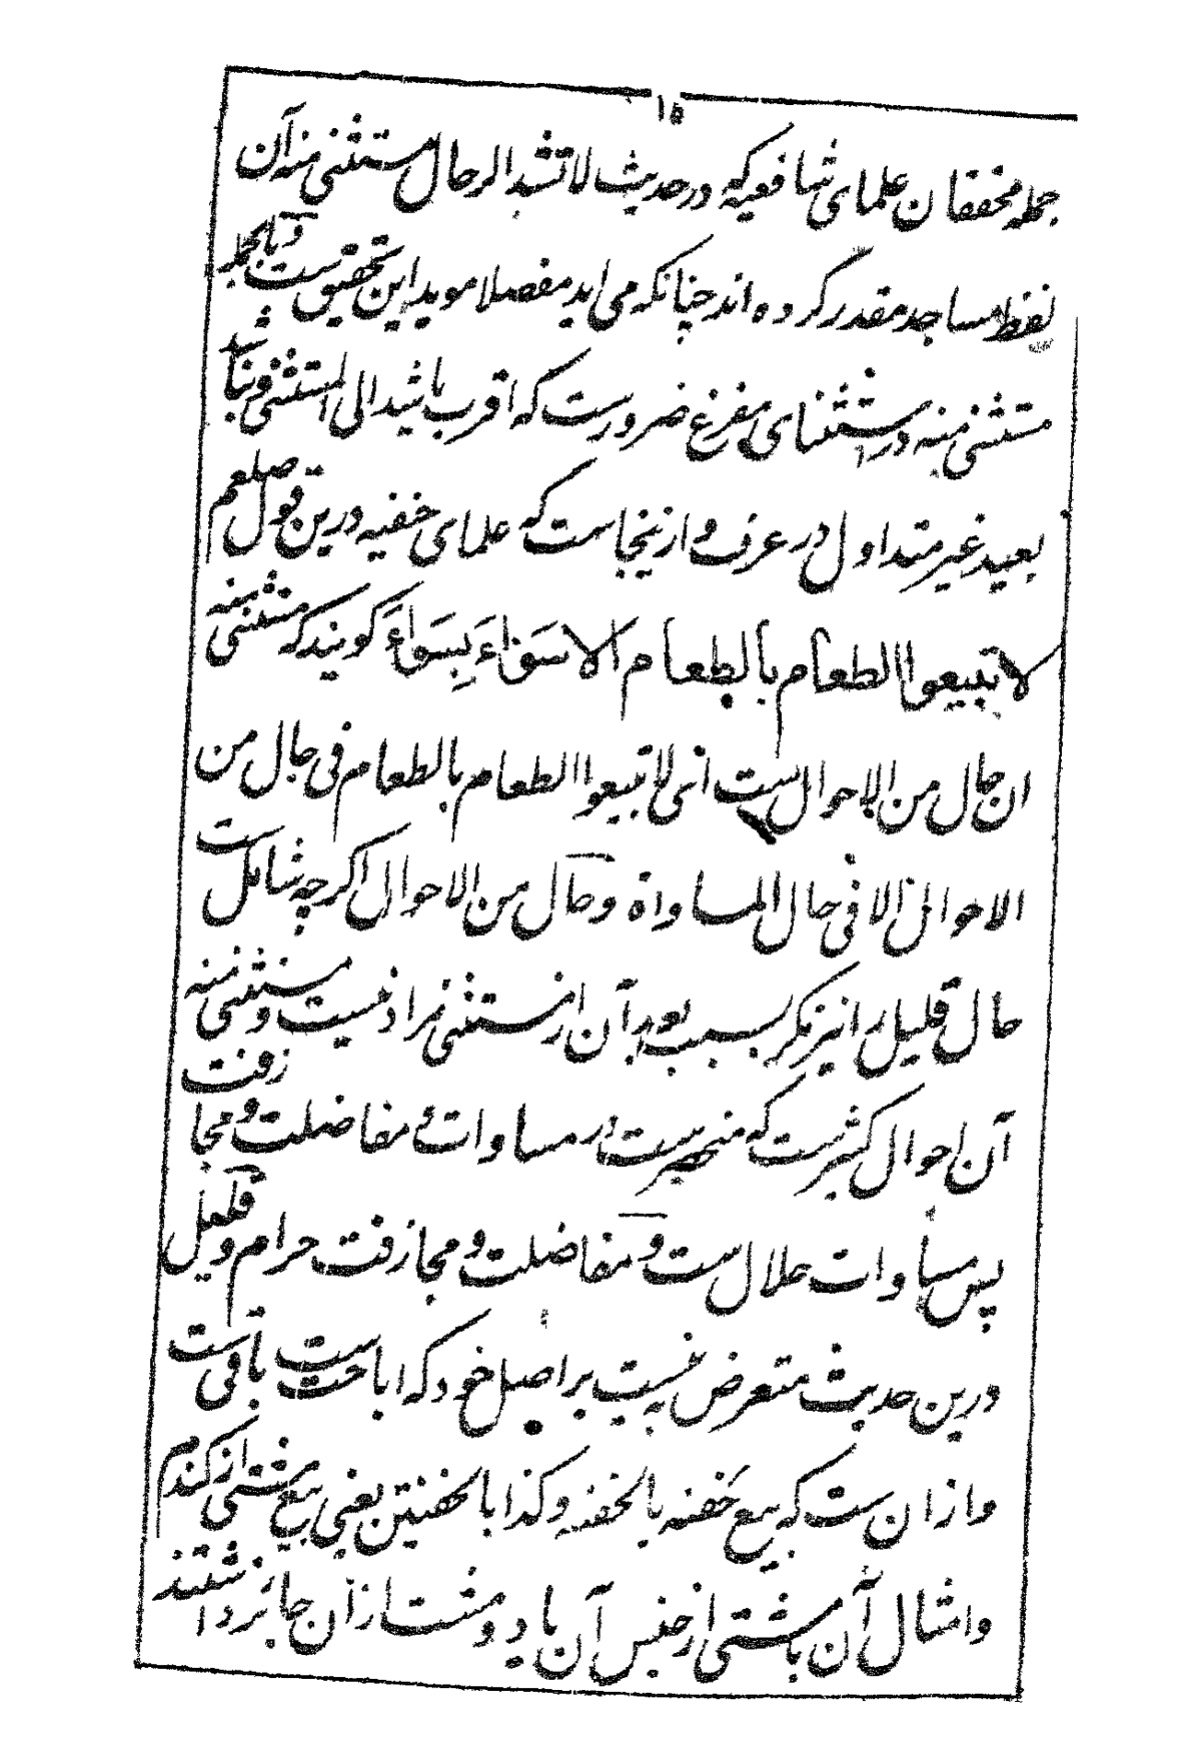 ۱۵
جمله محققان علمای شافعیه که در حدیث لا تشد الرحال مستثنی منه آن
لفظ مساجد مقدر کرده اند چنانکه می اید مفصلا موید این تحقیق ست و بالجمله
مستثنی منه در استثنای مفرغ ضرورست که اقرب باشد الی المستثنی و نباشد
بعید غیر متداول در عرف و ازینجاست که علمای حنفیه درین قول صلعم
لا تبیعوا الطعام بالطعام الا سَوَاءَ بِسَوَاءَ گویند که مستثنی منه
ان حال من الاحوال ست ای لا تبیعوا الطعام بالطعام فی حال من
الاحوال الا فی حال المساواة و حال من الاحوال اگرچه شامل ست
حال قلیل را نیز مگر بسبب بعد آن از مستثنی مراد نیست و مستثنی منه
آن احوال کثیرست که منحصرست در مساوات و مفاضلت و مجازفت
پس مساوات حلال ست و مفاضلت و مجازفت حرام و قلیل
درین حدیث متعرض به نیست بر اصل خود که اباحت ست باقی ست
و ازان ست که بیع حفنه بالحفنه و کذا بالحفنتین یعنی بیع مشتی از گندم
و امثال آن بامشتی از جنس آن یا دو مشت ازان جائز داشتند